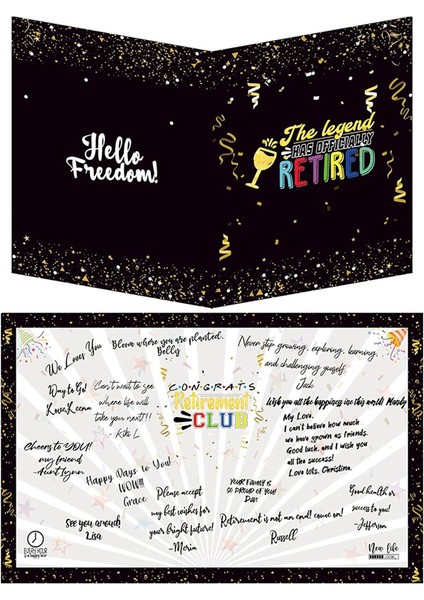 Hello
Freedom!
The legend
HAS OFFICIALLY
RETIRED
We Loves You
Bloom where you are planted.
Belly
Never stop growing, exploring, learning,
and challenging yourself.
Jack
Way to Go!
Love, Keena
Can't wait to see
where life will
take you next!!
Kiki L
CONGRATS
Retirement
CLUB
Wish you all the happiness in this world Mandy
My Love.
I can't believe how much
we have grown as friends.
Good luck, and I wish you
all the success!
Love lots, Christina.
Cheers to YOU!
my friend
-Aunt Lynn
Happy Days to You!
WOW!!!
Grace
Please accept
my best wishes for
your bright future!
-Maria
YOUR FAMILY IS
SO PROUD OF YOU!
Dad
Good health or
success to you!
-Jefferson
See you around!
Lisa
Retirement is not an end! come on!
Russell
EVERY HOUR
is a happy hour
New life